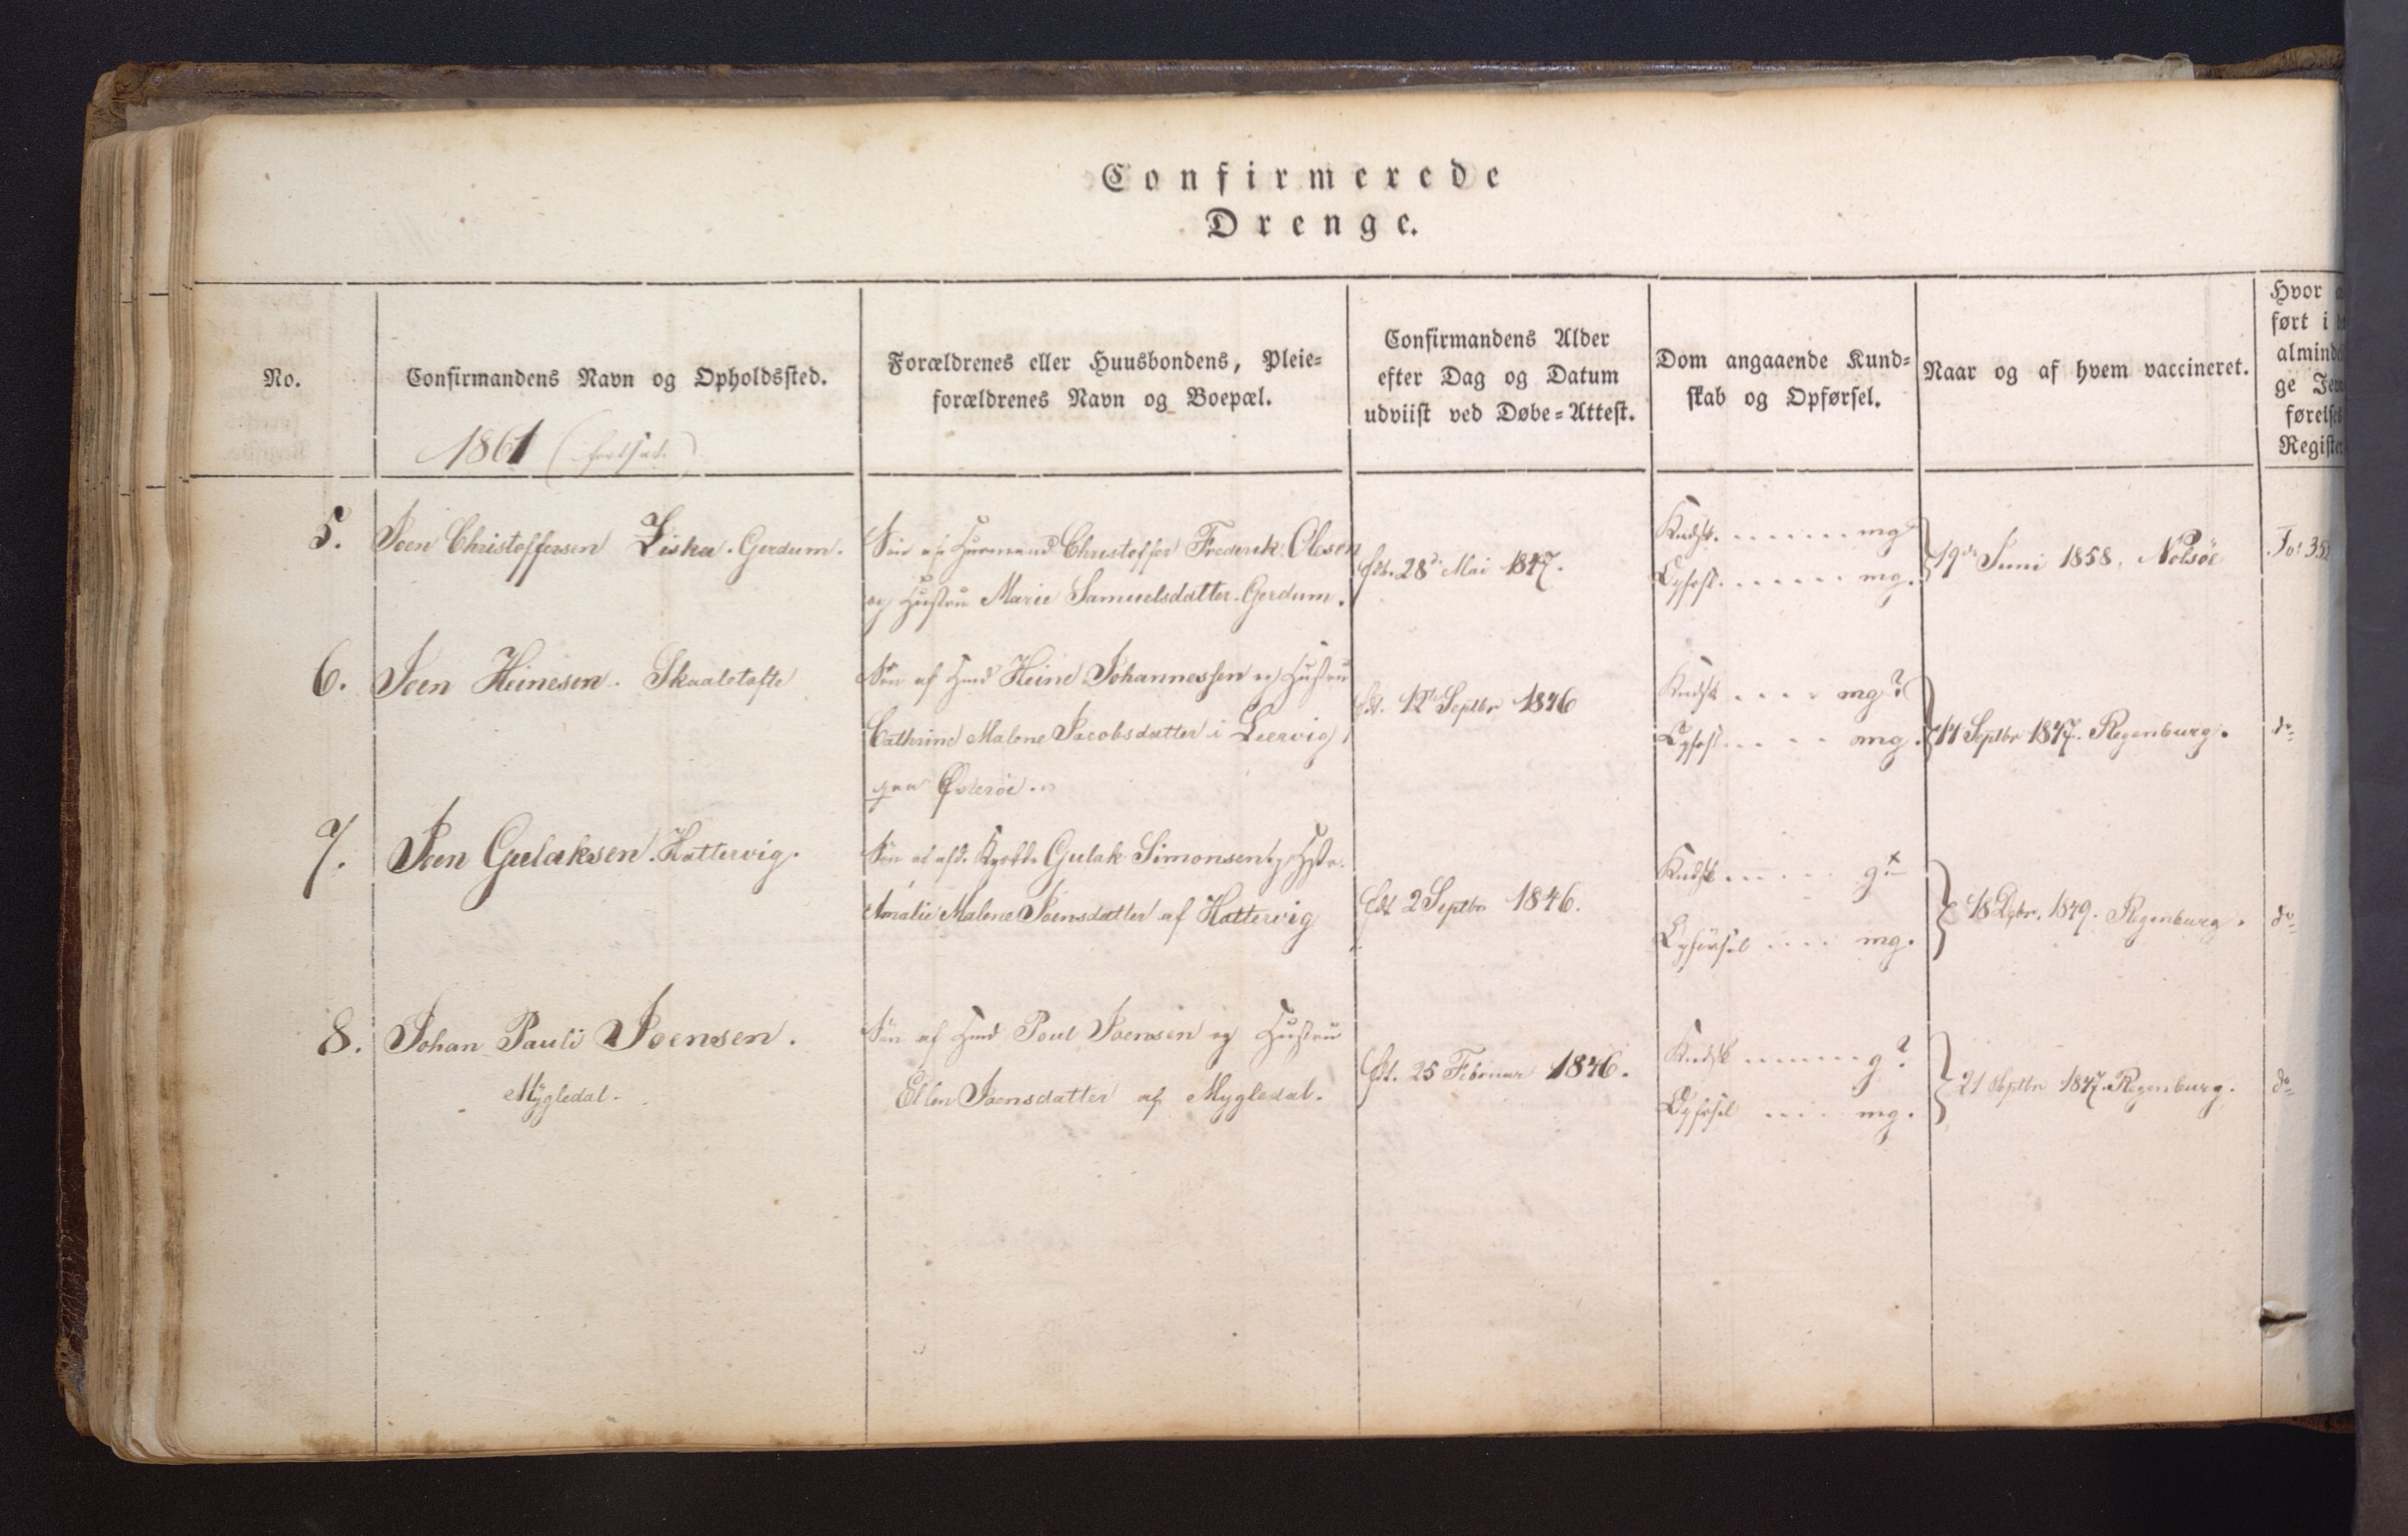 Confirmerede
Drenge.
No.
Confirmandens Navn og Opholdssted.
Forældrenes eller Huusbondens, Pleie=
forældrenes Navn og Boepæl.
Confirmandens Alder
efter Dag og Datum
udviist ved Døbe=Attest.
Dom angaaende Kund=
skab og Opførsel.
Naar og af hvem vaccineret.
Hvor
ført i
almin
ge
førels
Regist
1861 (fortsat.)
5.
Joen Christoffersen Liska. Gerdum.
Søn af Huusmand Christoffer Frederik Olesen
og Hustru Marie Samuelsdatter. Gerdum.
fdt. 28 Mai 1847.
Kndsk. ....... mg
Opførs. ...... mg.
19de Juni 1858. Nolsöe
Fol 35
6.
Joen Heinesen. Skaaletofte
Søn af Hmd Heine Johannessen og Hustru
Cathrine Malene Jacobsdatter i Leervig
paa Østerøe.
fdt. 12te Septbr 1846
Kndsk .... mg?
Opførs .... mg.
14 Septbr 1847. Regenburg.
do
7.
Joen Gulaksen. Hattervig.
Søn af afd. Gulak Simonsen og Hstr.
Amalie Malene Joensdatter af Hattervig
fdt 2 Septbr 1846.
Kndsk ..... g+
Opførsel .... mg.
18 1849. Regenburg.
do
8.
Johan Pauli Joensen.
Mygledal.
Søn af Hmd Poul Joensen og Hustru
Ellen Joensdatter af Mygledal.
fdt. 25 Februar 1846.
Kndsk ...... g?
Opførsel .... mg.
21 Septbr 1847. Regenburg.
do